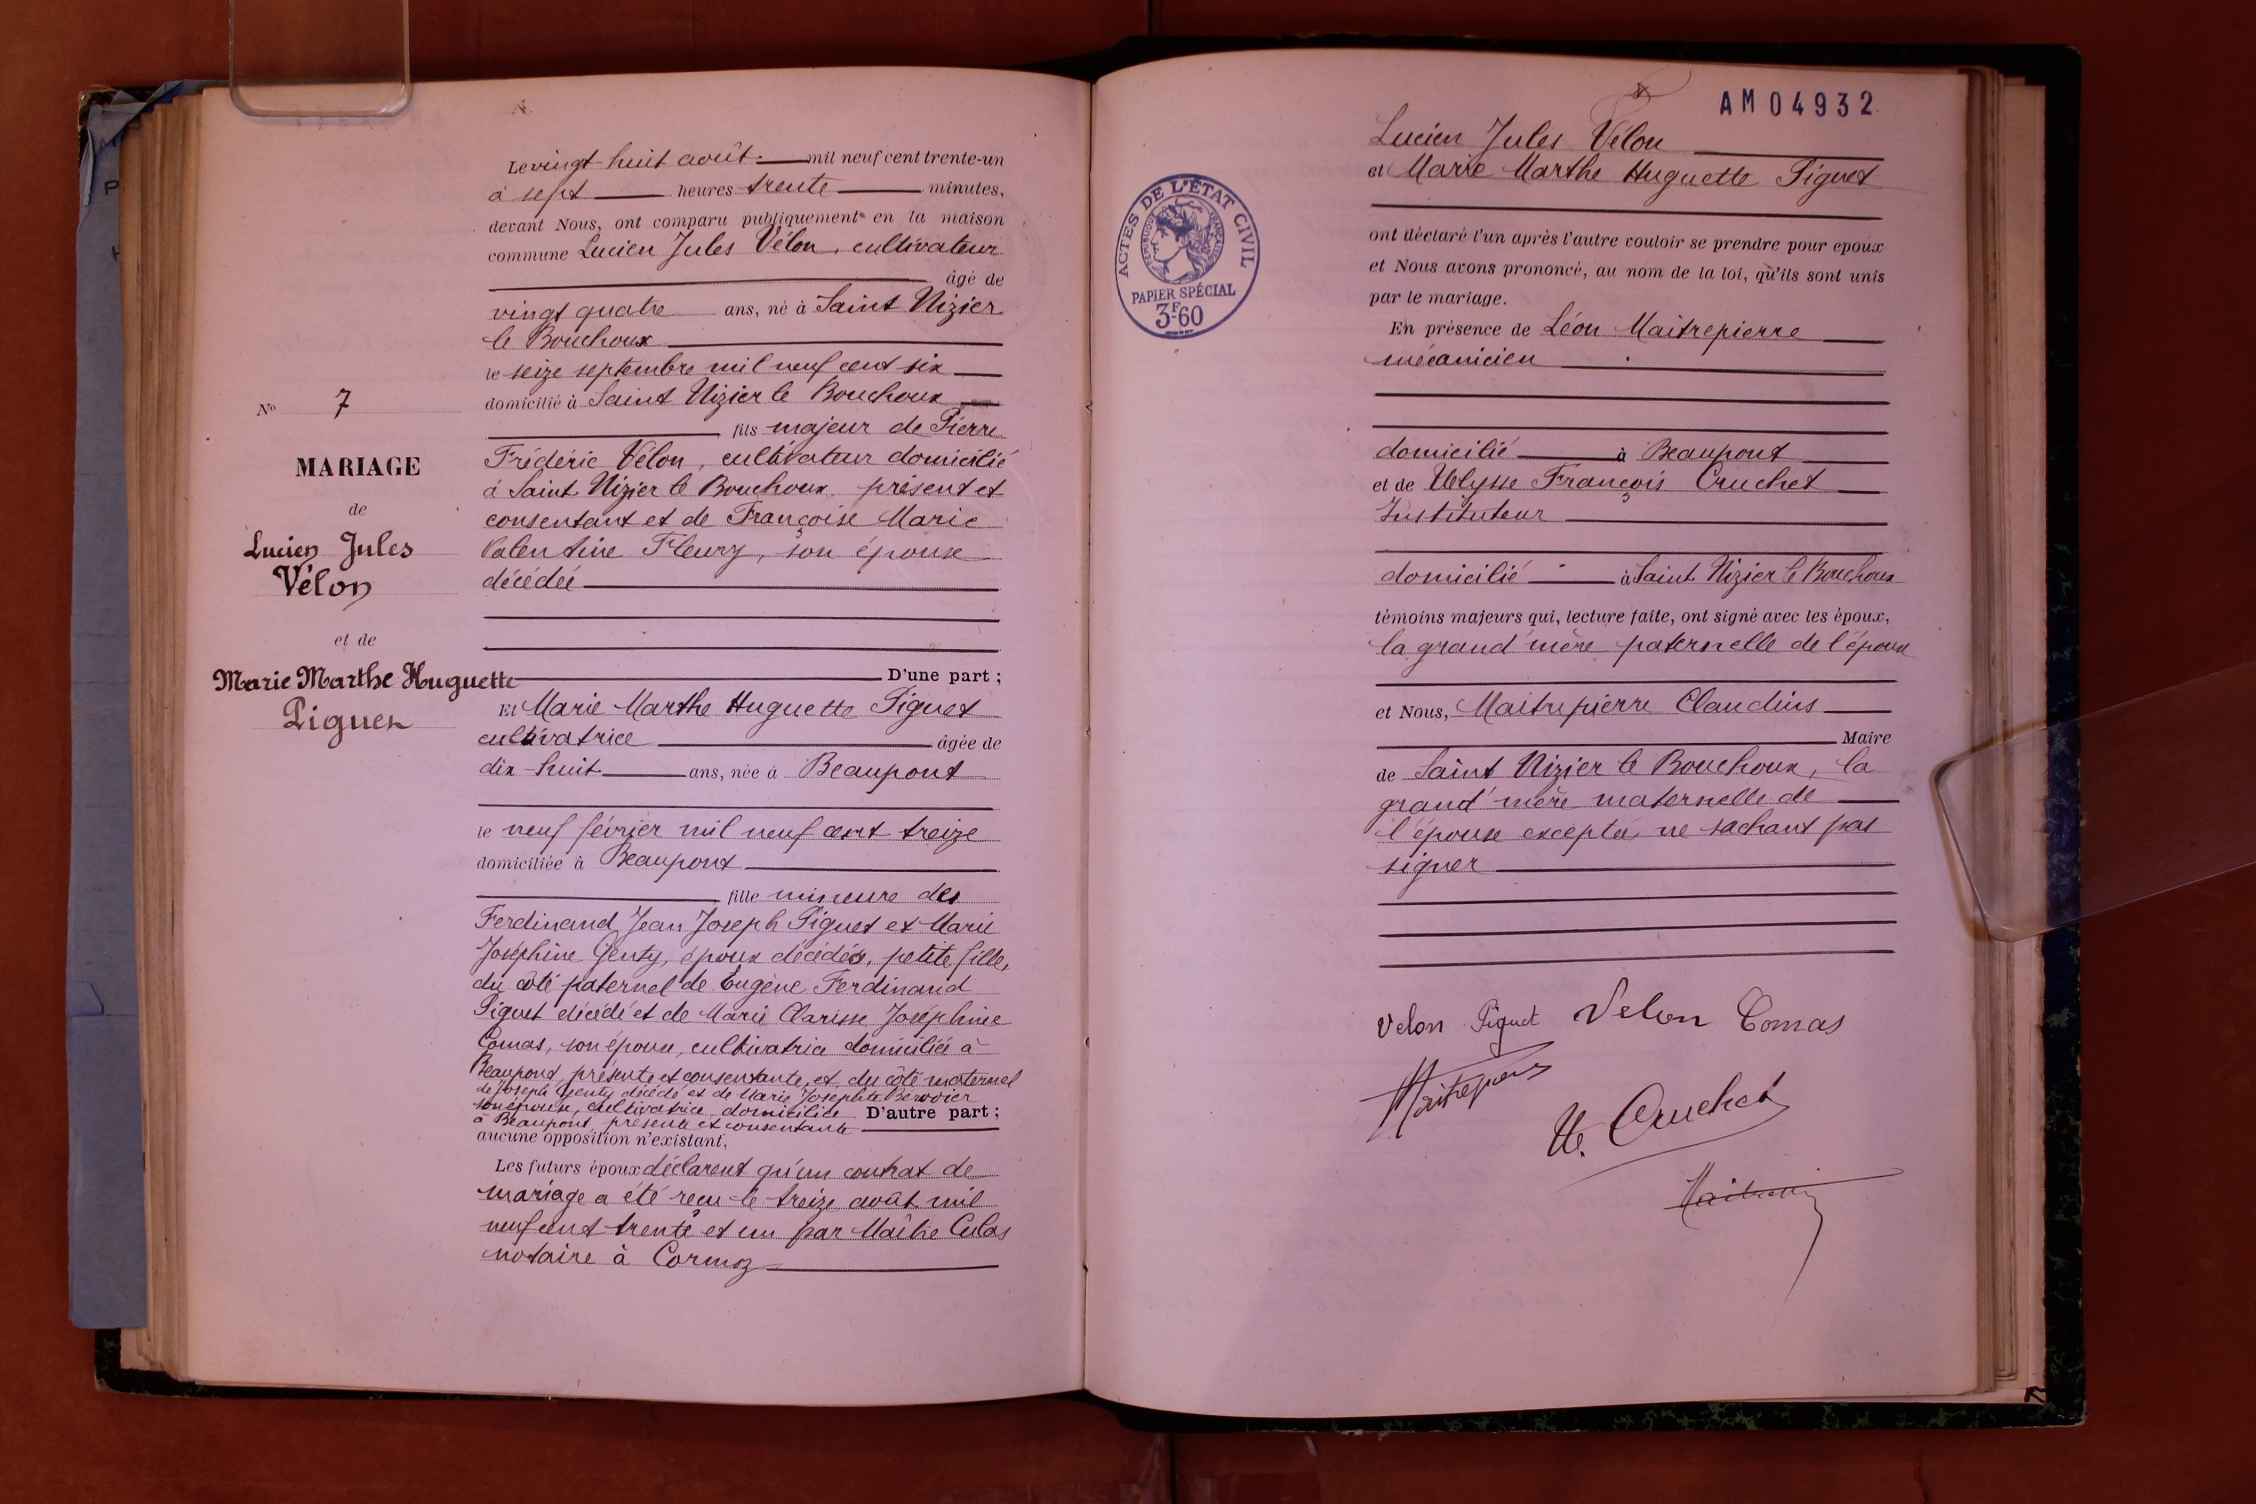 Le vingt-huit août mil neuf cent trente-un
à sept heures trente minutes,
devant Nous, ont comparu publiquement en la maison
commune Lucien Jules Vélon, cultivateur
âgé de
vingt quatre ans, né à Saint Nizier
le Bouchoux
le seize septembre mil neuf cent six
domicilié à Saint Nizier le Bouchoux
fils majeur de Pierre
Frédéric Vélon, cultivateur domicilié
à Saint Nizier le Bouchoux présent et
consentant et de Françoise Marie
Valentine Fleury, son épouse
décédée
D'une part ;
Et Marie Marthe Huguette Piguet
cultivatrice âgée de
dix-huit ans, née à Beaupont
le neuf février mil neuf cent treize
domiciliée à Beaupont
fille mineure des
Ferdinand Jean Joseph Piguet et Marie
Joséphine Genty, époux décédés, petite fille,
du côté paternel de Eugène Ferdinand
Piguet décédé et de Marie Clarisse Joséphine
Comas, son épouse, cultivatrice domiciliée à
Beaupont, présente et consentante, et du côté maternel
de Joseph Genty décédé et de Marie Josephte
son épouse, cultivatrice domiciliée D'autre part ;
à Beaupont présente et consentante
aucune opposition n'existant,
Les futurs époux déclarent qu'un contrat de
mariage a été reçu le treize août mil
neuf cent trente et un par Maître Culas
notaire à Cormoz
No 7
MARIAGE
de
Lucien Jules
Vélon
et de
Marie Marthe Huguette
Piguet
AM04932
ACTES DE L'ÉTAT CIVIL
RÉPUBLIQUE FRANÇAISE
PAPIER SPÉCIAL
3F60
Lucien Jules Vélon
et Marie Marthe Huguette Piguet
ont déclaré l'un après l'autre vouloir se prendre pour époux
et Nous avons prononcé, au nom de la loi, qu'ils sont unis
par le mariage.
En présence de Léon Maitrepierre
mécanicien
domicilié à Beaupont
et de Ulysse François Cruchet
Instituteur
domicilié à Saint Nizier le Bouchoux
témoins majeurs qui, lecture faite, ont signé avec les époux,
la grand'mère paternelle de l'époux
et Nous, Maitrepierre Claudius
Maire
de Saint Nizier le Bouchoux, la
grand'mère maternelle de
l'épouse exceptée ne sachant pas
signer
Velon Piguet Velon Comas
Maitrepierre
U. Cruchet